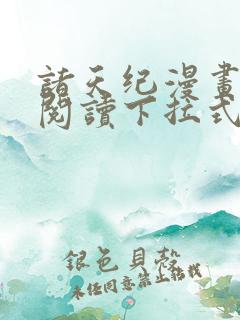 諸天纪漫畫
閱讀下拉式
銀色貝殼
未经同意禁止转载